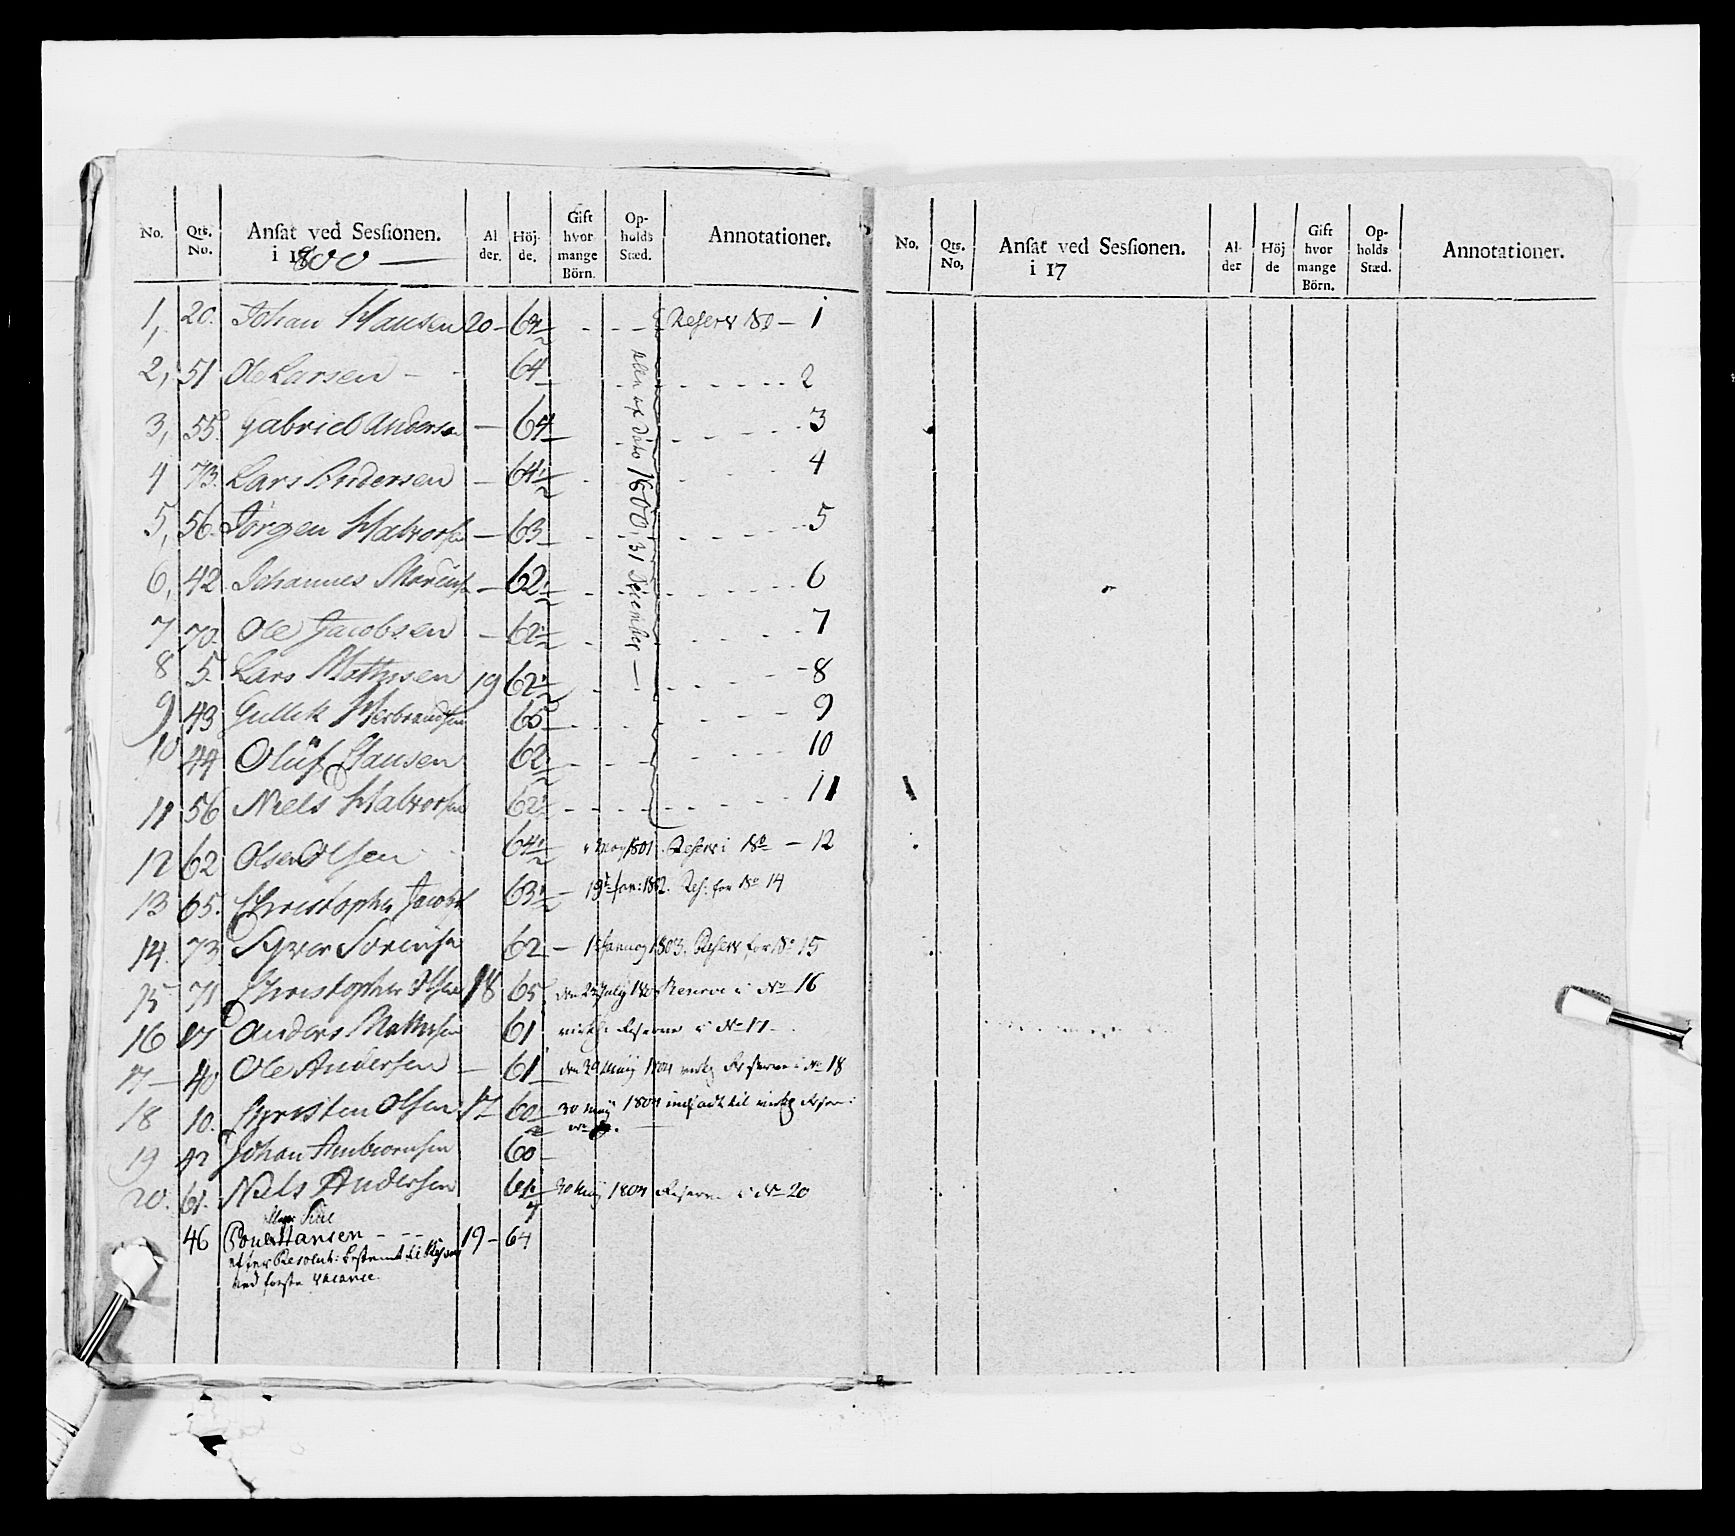 No. Qts. No. Ansat ved Sessionen. i 1800 — Al der. Höj- de. Gift hvor mange Börn. Op- holds Stæd. Annotationer.
1, 20. Johan Hansen 20 – 64½ Reserv No – 1
2, 51 Ole Larsen – 64 2
3, 55. Gabriel Andersen — 64 3
4 73. Lars Andersen — 64½ 4
5, 56. Jörgen Halvorsen — 63 5
6, 42 Johannes — 62½ 6
7 70. Ole Jacobsen — 62½ 7
8 5 Lars Mathisen 19 62½ 8
9 43 Gullik Herbrandsen 65 9
10 44 Oluf Hansen 62½ 10
11 56 Niels Halvorsen 62½ 11
1800, 31 December —
12 62 Olsen 64½ 1801. Reserv i No — 12
13 65. Christopher Jacobs 63½ — 19 Jan: 1802. Res: for No 14
14. 73. Syver 62 — 1803. Reserv for No 15
15 71 Christopher Olsen 18 65 den July Reserve i No 16
16 Anders Mathisen 61 Reserve i No 17
17 — 40 Ole Andersen — 61 den 30 May 1804 Reserve i No 18
18 10. Christen Olsen 17 60½ 30 May 1804 indsadt til Reser:
19 42 Johan 60
20. 61. Niels Andersen 61¼ 30 May 1804 Reserve i No 20
46 Hansen – – – 19 – 64
efter Resolut: bestemt til
ved første vacance.
No. Qts. No, Ansat ved Sessionen. i 17 Al- der Höj de Gift hvor mange Börn. Op- holds Stæd. Annotationer.